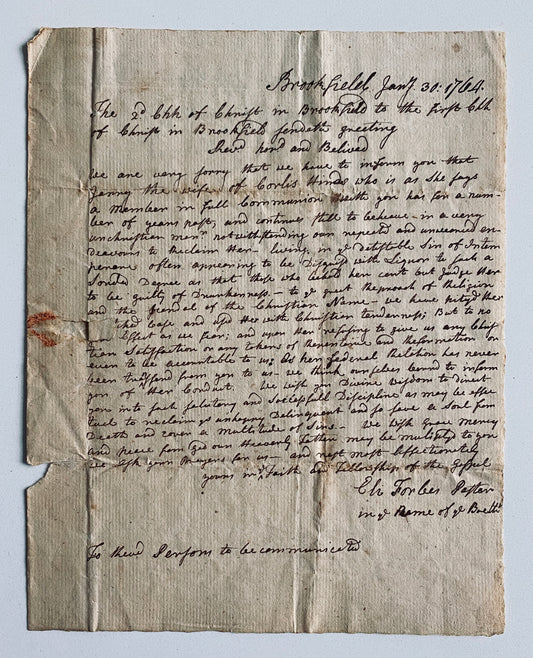 Brookfield Jany. 30. 1764.
The 2d Chh of Christ in Brookfield to the First Chh
of Christ in Brookfield sendeth greeting
Revd hond and Belived
We are very sorry that we have to inform you that
the wife of Corlis Hinds who is as she says
a Member in full Communion with you has for a num-
ber of years past, and continues still to behave in a very
unchristian manr notwithstanding our repeated and unwearied en-
deavours to Reclaim Her - living in ye detestable Sin of Intem
perance often appearing to be Disguisd with Liquor to such a
Degree as that those who beheld her cant but Judge Her
to be guilty of Drunkenness - to ye great Reproach of Religion
and the scandal of the Christian Name - we have pityd Her
Case and usd Her with Christian tenderness; But to no
Effect as we fear; and upon Her refusing to give us any Chris
tian Satisfaction or any tokens of Repentance and Reformation or
even to be accountable to us; As her federal Relation has never
been transfard from you to us - we think ourselves bound to inform
you of Her Conduct. We wish you Divine Wisdom to direct
you into such salutary and Successfull Discipline as may be effec
tual to reclaim ys unhappy Delinquent and so save a Soul from
Death and cover a multitude of Sins - We wish grace mercy
and peace from God our Heavenly Father may be multiplyd to you
we ask your Prayers for us - and rest most affectionately
yours in ye Faith and Fellowship of the Gospel
Eli Forbes Pastor
in ye Name of ye Brethn
To Persons to be communicated